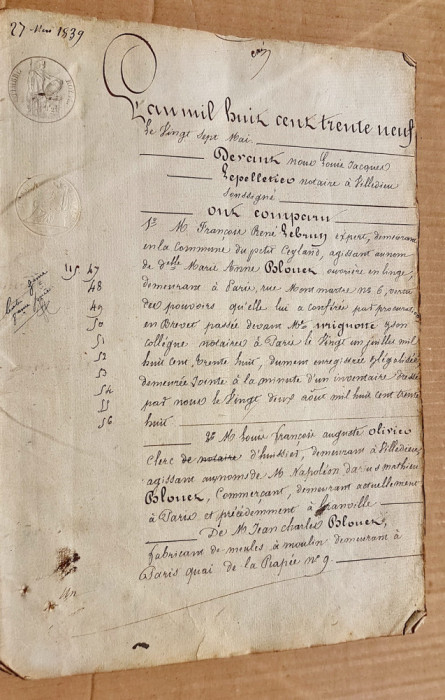 27 Mai 1839
L'an mil huit cent trente neuf
Le Vingt Sept Mai
Devant nous Louis Jacques
Lepelletier notaire à Villedieu
Soussigné
ont comparu
1º M François René Lebrun expert, demeurant
en la Commune du petit Ceyland, agissant au nom
de delle Marie Anne Blouet ouvrière en linge,
demeurant à Paris, rue Montmartre no 6, vertu
des pouvoirs qu'elle lui a conférés par procuration
en Brevet passée devant Me vrignotte & son
collègue notaires à Paris le Vingt un juillet mil
huit cent trente huit, dument enregistrée & légalisée
demeurée Jointe à la minute d'un inventaire dressé
par nous le Vingt deux août mil huit cent trente
huit
2º M Louis François auguste Olivier
Clerc de notaire d'huissier, demeurant à Villedieu,
agissant au nom de M Napoléon Darius Mathieu
Blouet, Commerçant, demeurant actuellement
à Paris et précédemment à Granville
De M Jean Charles Blouet,
fabricant de meules à moulin demeurant à
Paris quai de la Rapée no 9.
47
48
49
50
51
52
53
54
55
56